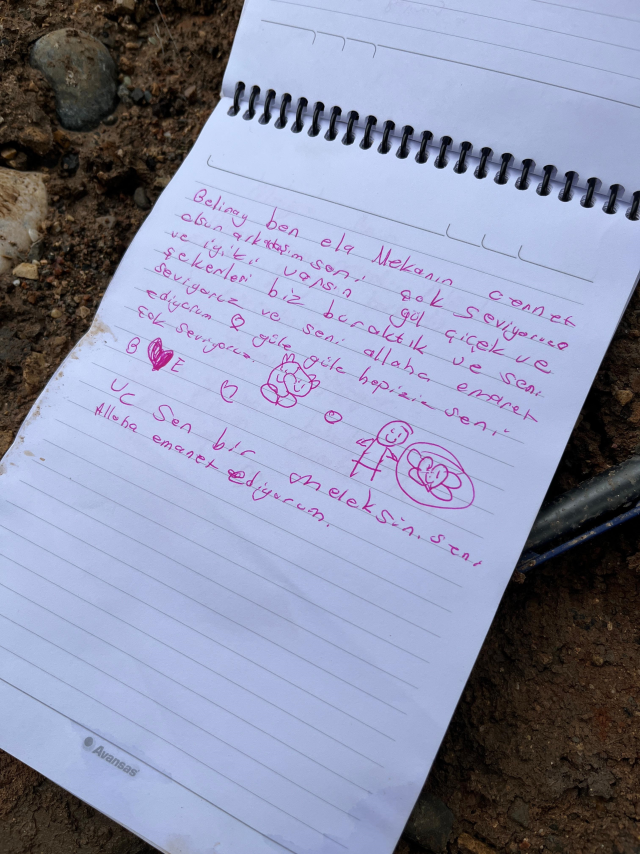 Belinay ben ela Mekanın cennet
olsun arkadaşım seni çok seviyoruz
ve iyiki varsın gül çiçek ve
şekerleri biz buraktık ve seni
seviyoruz ve seni allaha emanet
ediyorum güle güle hepizin seni
çok seviyoruz
B E
UC Sen bir meleksin. seni
Allaha emanet ediyorum.
Avansas